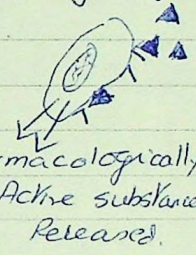 macologically
Active substance
Released.